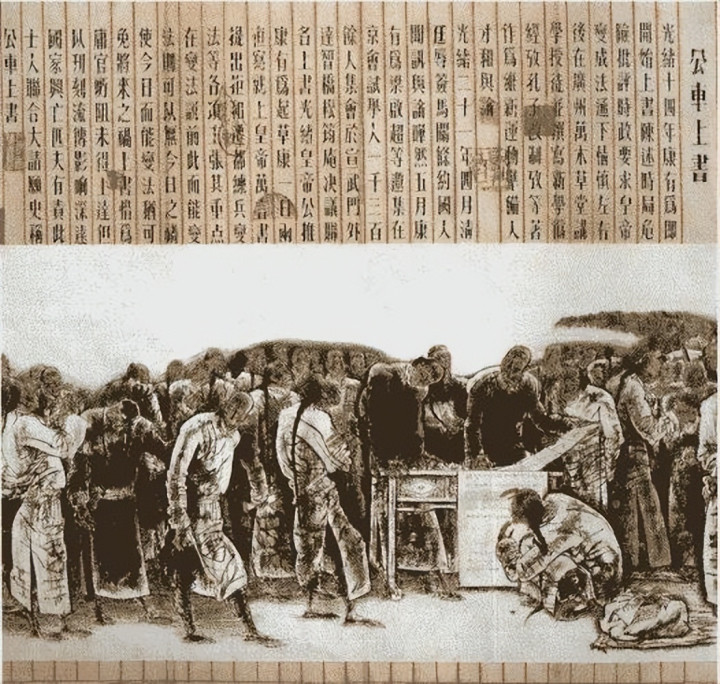 公車上書
光緒十四年康有爲即
開始上書陳述時局危
險批評時政要求皇帝
變成法通下情慎左右
後在廣州萬木草堂講
學授徒並撰寫新學僞
經攷孔子改制攷等著
作爲維新運動學編人
才和輿論
光緒二十一年四月清
廷辱簽馬關條約國人
聞訊輿論嘩然五月康
有爲梁啟超等邀集在
京會試舉人一千三百
餘人集會於宣武門外
達智橋松筠庵决議聯
名上書光緒皇帝公推
康有爲起草康一日兩
夜寫就上皇帝萬言書
提出拒和遷都練兵變
法等各項主張其重点
在變法謂前此而能變
法則可以無今日之禍
使今日而能變法猶可
免將來之禍上書惜爲
庸官所阻未得上達但
以刊刻流傳影響深遠
國家興亡匹夫有責此
士人聯合大請願史稱
公車上書